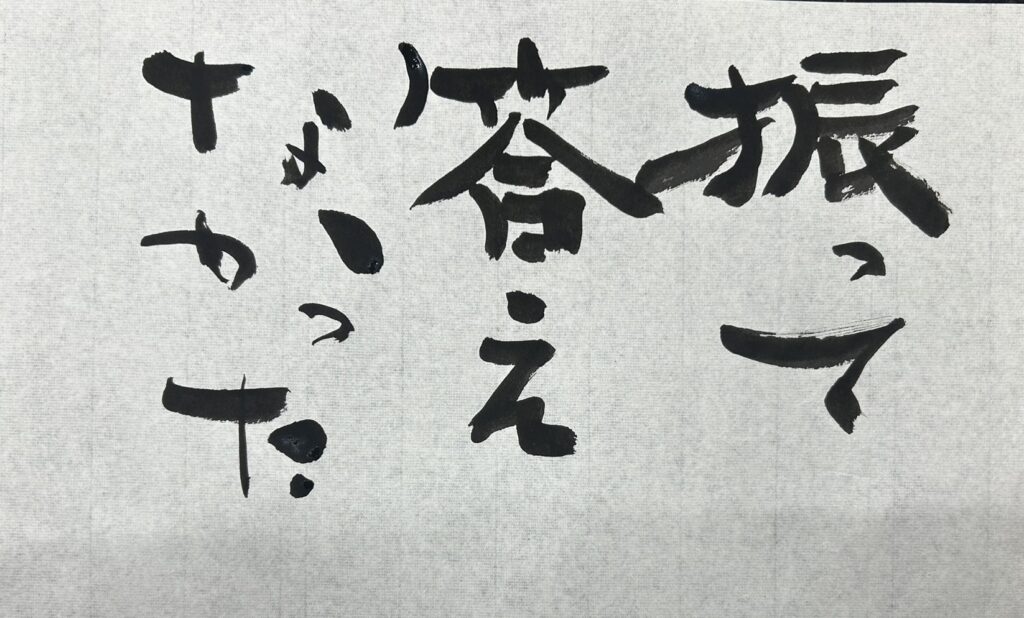 振って
答え
なかった